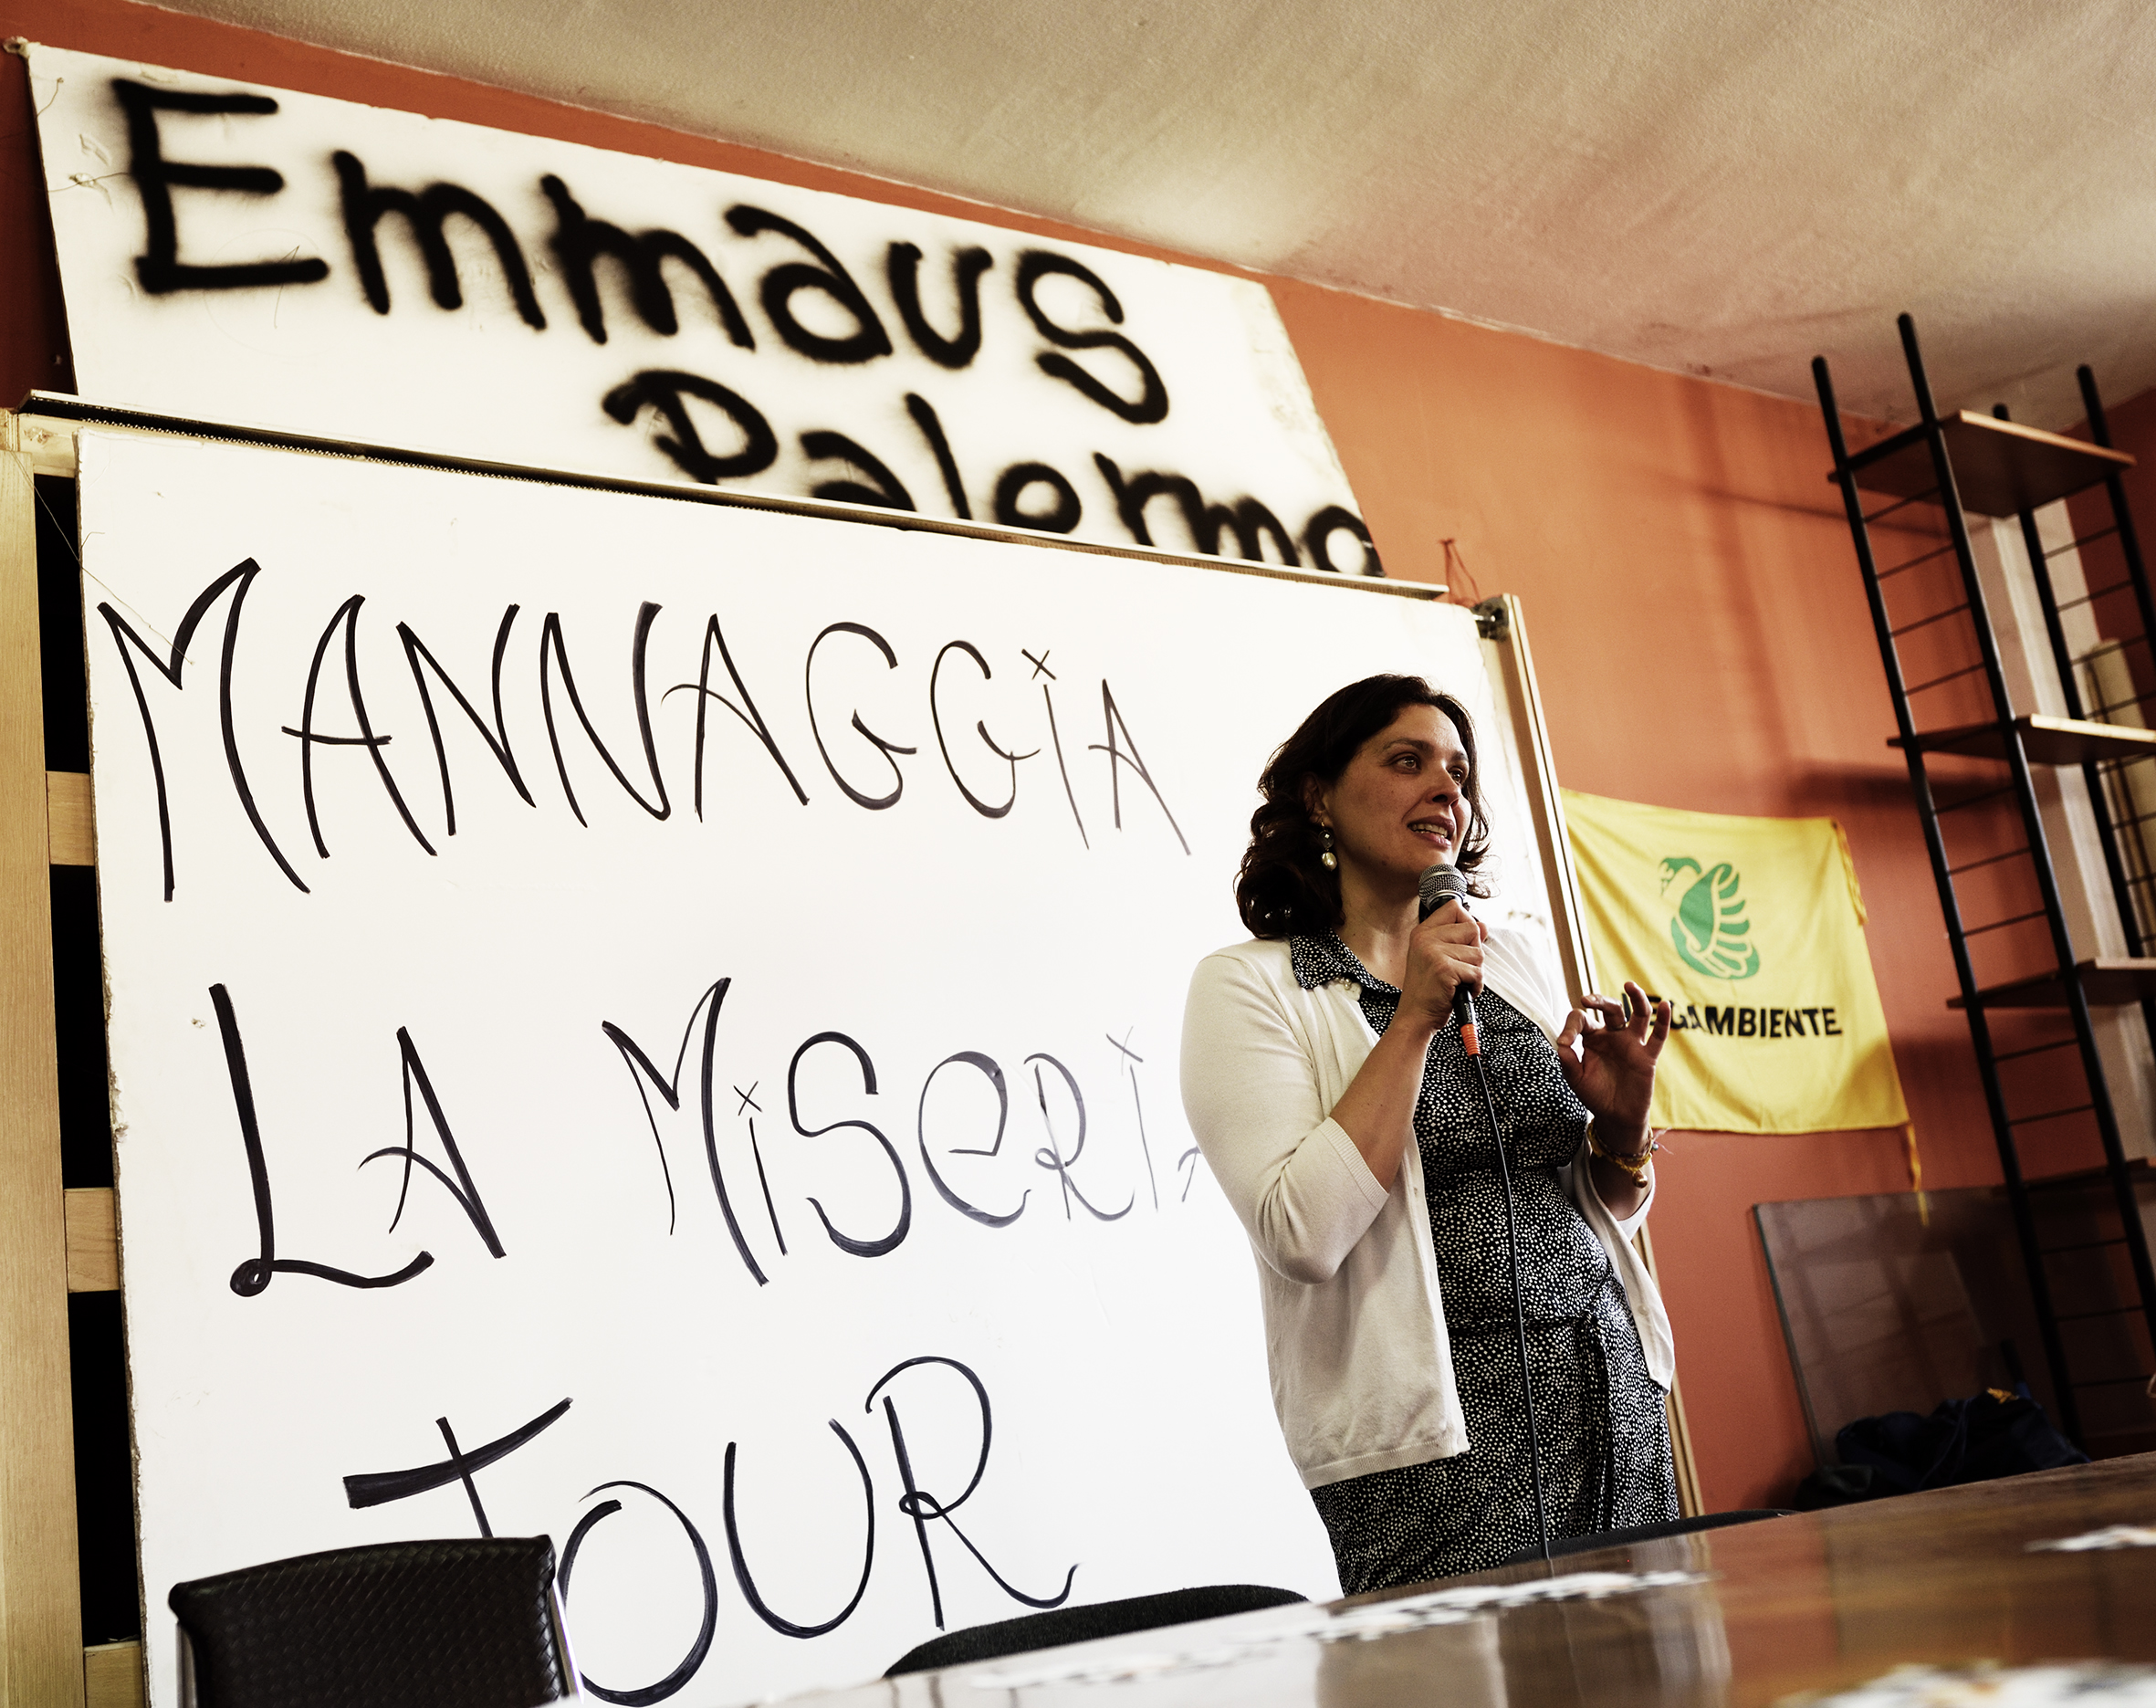 Emmaus
Palermo
MANNAGGiA
LA MiSeRiA
TOUR
LEGAMBIENTE